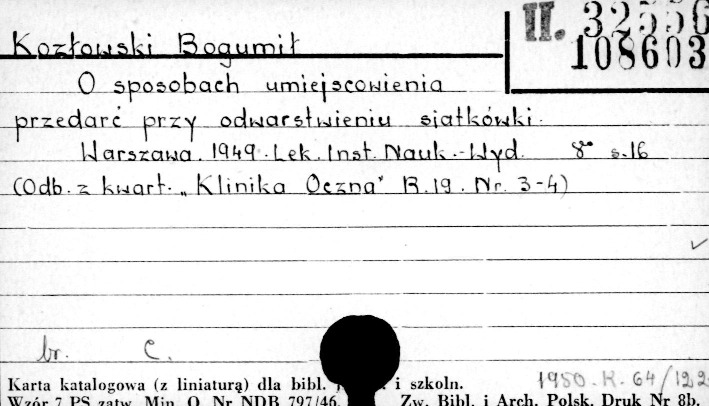 II. 32556
108603
Kozłowski Bogumił
O sposobach umiejscowienia
przedarć przy odwarstwieniu siatkówki.
Warszawa. 1949. Lek. Inst. Nauk.-Wyd. 8° s. 16
(Odb. z kwart. „Klinika Oczna" R. 19. Nr. 3-4)
br. C.
1950. K. 64/122
Karta katalogowa (z liniaturą) dla bibl. i szkoln.
Wzór 7 PS zatw. Min. O. Nr NDB 797/46. Zw. Bibl. i Arch. Polsk. Druk Nr 8b.